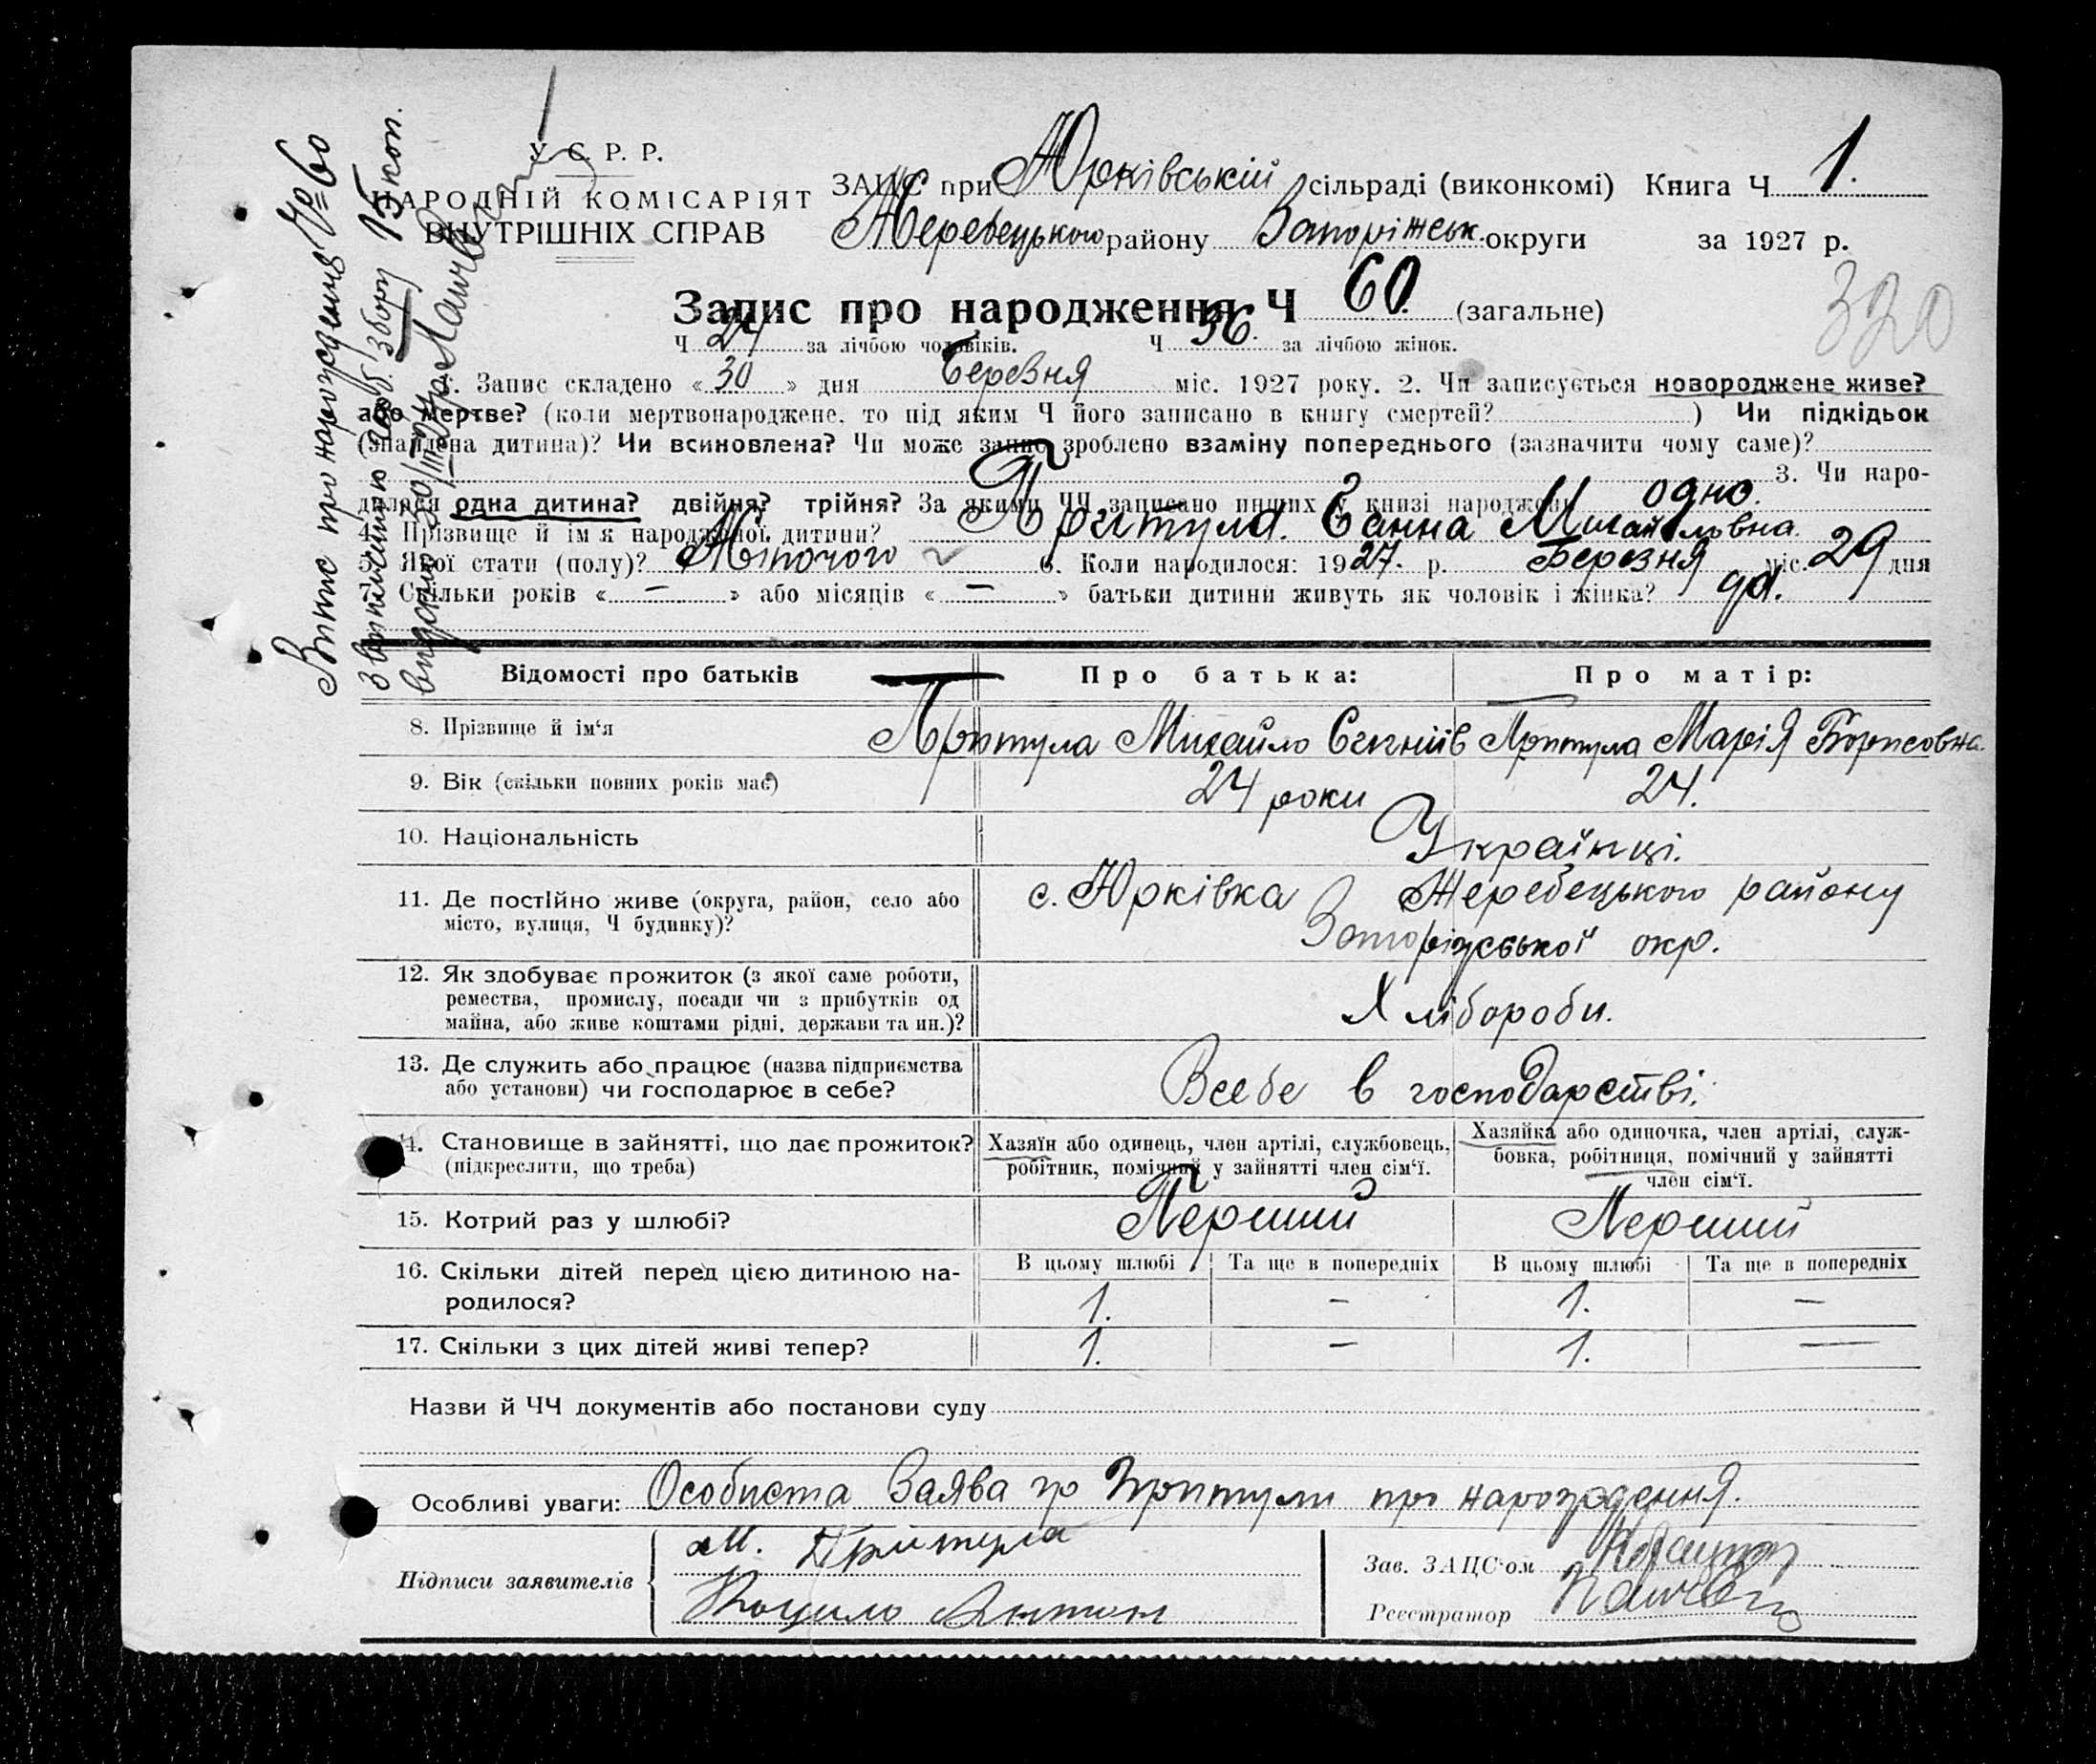 У. С. Р. Р.
НАРОДНІЙ КОМІСАРІЯТ
ВНУТРІШНІХ СПРАВ
ЗАЦС при Юрківській сільраді (виконкомі) Книга Ч 1.
Жеребецького району Запоріжськ. округи за 1927 р.
Запис про народження Ч 60. (загальне)
320
Ч 24 за лічбою чоловіків. Ч 36. за лічбою жінок.
1. Запис складено « 30 » дня Березня міс. 1927 року. 2. Чи записується новороджене живе?
або мертве? (коли мертвонароджене, то під яким Ч його записано в книгу смертей? ) Чи підкідьок
(знайдена дитина)? Чи всиновлена? Чи може запис зроблено взаміну попереднього (зазначити чому саме)?
3. Чи наро-
дилося одна дитина? двійня? трійня? За якими ЧЧ записано инших у книзі народжень одно.
4. Прізвище й ім'я народженої дитини? Притула. Ганна Михайловна.
5. Якої стати (полу)? Жіночого 6. Коли народилося: 1927. р. Березня міс. 29 дня
7. Скільки років « — » або місяців « — » батьки дитини живуть як чоловік і жінка?
Відомості про батьків Про батька: Про матір:
8. Прізвище й ім'я Притула Михайло Притула Марія Борисовна.
9. Вік (скільки повних років має) 24 роки 24.
10. Національність Українці.
11. Де постійно живе (округа, район, село або
місто, вулиця, Ч будинку)?
с. Юрківка Жеребецького району
Запоріжської окр.
12. Як здобуває прожиток (з якої саме роботи,
ремества, промислу, посади чи з прибутків од
майна, або живе коштами рідні, держави та ин.)?
Хлібороби.
13. Де служить або працює (назва підприємства
або установи) чи господарює в себе?
Всебе в господарстві.
14. Становище в зайнятті, що дає прожиток?
(підкреслити, що треба)
Хазяїн або одинець, член артілі, службовець,
робітник, помічний у зайнятті член сім'ї.
Хазяйка або одиночка, член артілі, служ-
бовка, робітниця, помічний у зайнятті
член сім'ї.
15. Котрий раз у шлюбі? Перший Перший
16. Скільки дітей перед цією дитиною на-
родилося?
В цьому шлюбі Та ще в попередніх В цьому шлюбі Та ще в попередніх
1. — 1. —
17. Скільки з цих дітей живі тепер? 1. — 1. —
Назви й ЧЧ документів або постанови суду
Особливі уваги: Особиста Заява гр Притули про народження.
Підписи заявителів
М. Притула
Коцило Антон
Зав. ЗАЦС'ом
Реєстратор
Витис про народження № 60
з 15 коп.